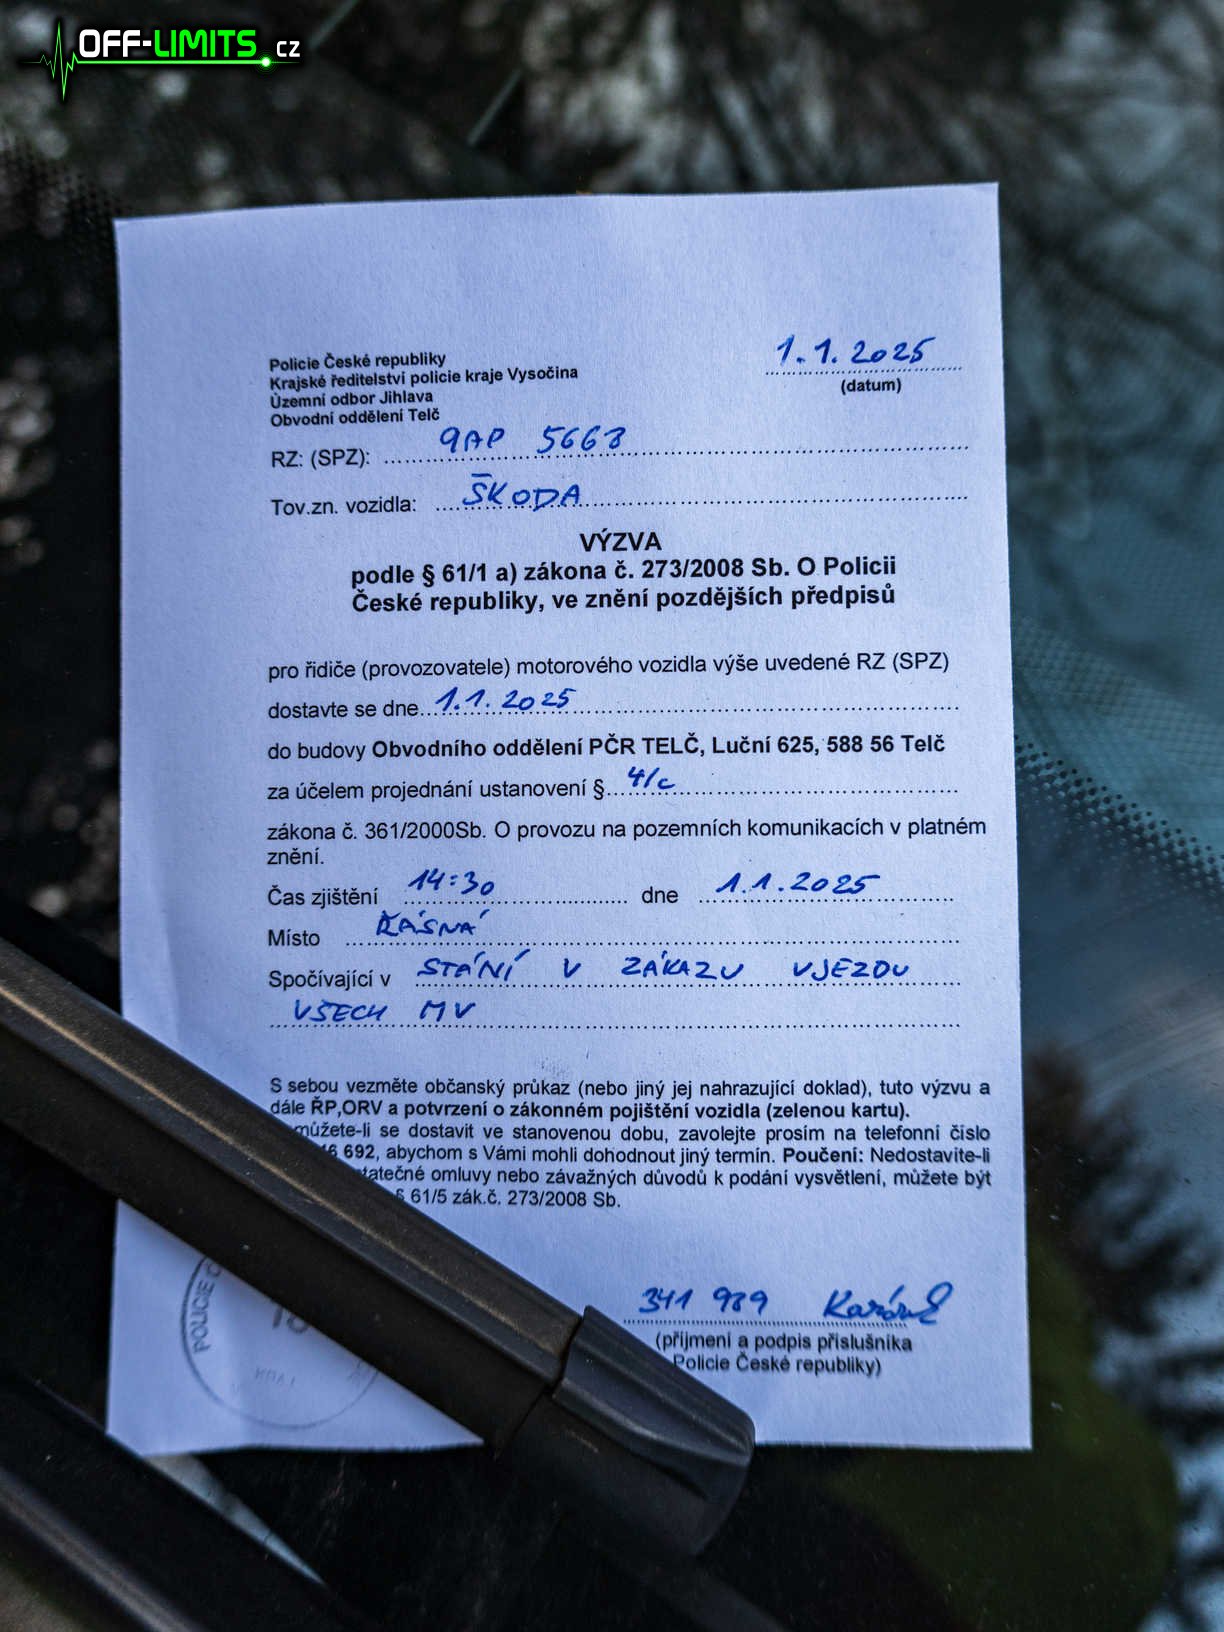 OFF-LIMITS.cz
Policie České republiky
Krajské ředitelství policie kraje Vysočina
Územní odbor Jihlava
Obvodní oddělení Telč
1.1.2025
(datum)
RZ: (SPZ): 9AP 5663
Tov.zn. vozidla: ŠKODA
VÝZVA
podle § 61/1 a) zákona č. 273/2008 Sb. O Policii
České republiky, ve znění pozdějších předpisů
pro řidiče (provozovatele) motorového vozidla výše uvedené RZ (SPZ)
dostavte se dne 1.1.2025
do budovy Obvodního oddělení PČR TELČ, Luční 625, 588 56 Telč
za účelem projednání ustanovení § 4/c
zákona č. 361/2000Sb. O provozu na pozemních komunikacích v platném
znění.
Čas zjištění 14:30 dne 1.1.2025
Místo ŘÁSNÁ
Spočívající v STÁNÍ V ZÁKAZU VJEZDU
VŠECH MV
S sebou vezměte občanský průkaz (nebo jiný jej nahrazující doklad), tuto výzvu a
dále ŘP,ORV a potvrzení o zákonném pojištění vozidla (zelenou kartu).
můžete-li se dostavit ve stanovenou dobu, zavolejte prosím na telefonní číslo
692, abychom s Vámi mohli dohodnout jiný termín. Poučení: Nedostavíte-li
omluvy nebo závažných důvodů k podání vysvětlení, můžete být
§ 61/5 zák.č. 273/2008 Sb.
341 989
(příjmení a podpis příslušníka
Policie České republiky)
POLICIE
KRAJ